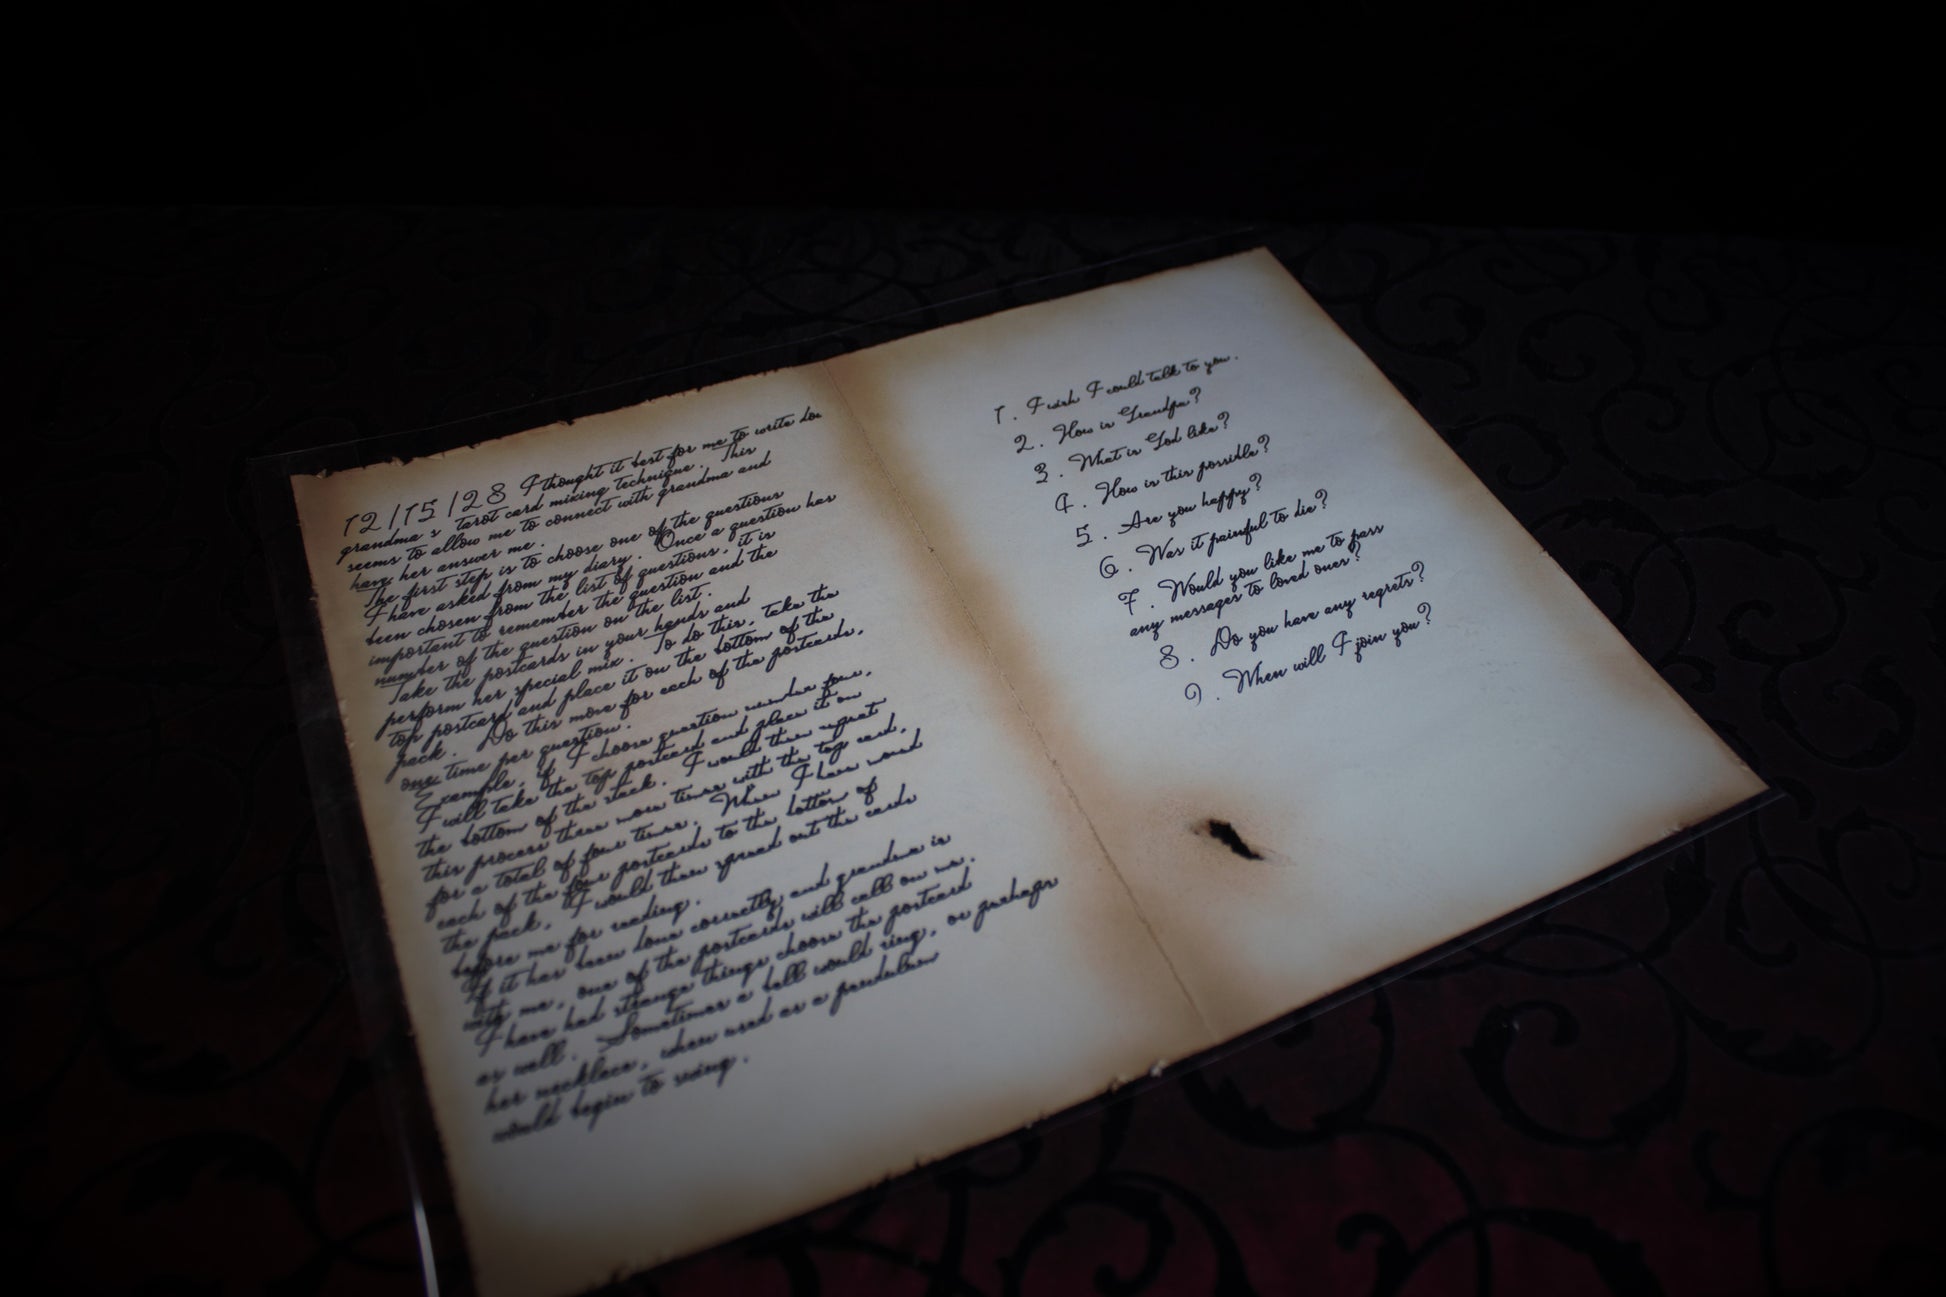 12/15/28 I thought it best for me to write dow
grandma s tarot card mixing technique. This
seems to allow me to connect with grandma and
have her answer me.
The first step is to choose one of the questions
I have asked from my diary. Once a question has
been chosen from the list of questions, it is
important to remember the question and the
number of the question on the list.
Take the postcards in your hands and
perform her special mix. To do this, take the
top postcard and place it on the bottom of the
pack. Do this move for each of the postcards,
one time per question.
Example, if I choose question number four,
I will take the top postcard and place it on
the bottom of the stack. I would then repeat
this process three more times with the top card,
for a total of four times. When I have moved
each of the four postcards to the bottom of
the pack, I would then spread out the cards
before me for reading.
If it has been done correctly and grandma is
with me, one of the postcards will call on me.
I have had strange things choose the postcard
as well. Sometimes a bell would ring, or perhaps
her necklace, when used as a pendulum
would begin to swing.
1. I wish I could talk to you.
2. How is Grandpa?
3. What is God like?
4. How is this possible?
5. Are you happy?
6. Was it painful to die?
7. Would you like me to pass
any messages to loved ones?
8. Do you have any regrets?
9. When will I join you?